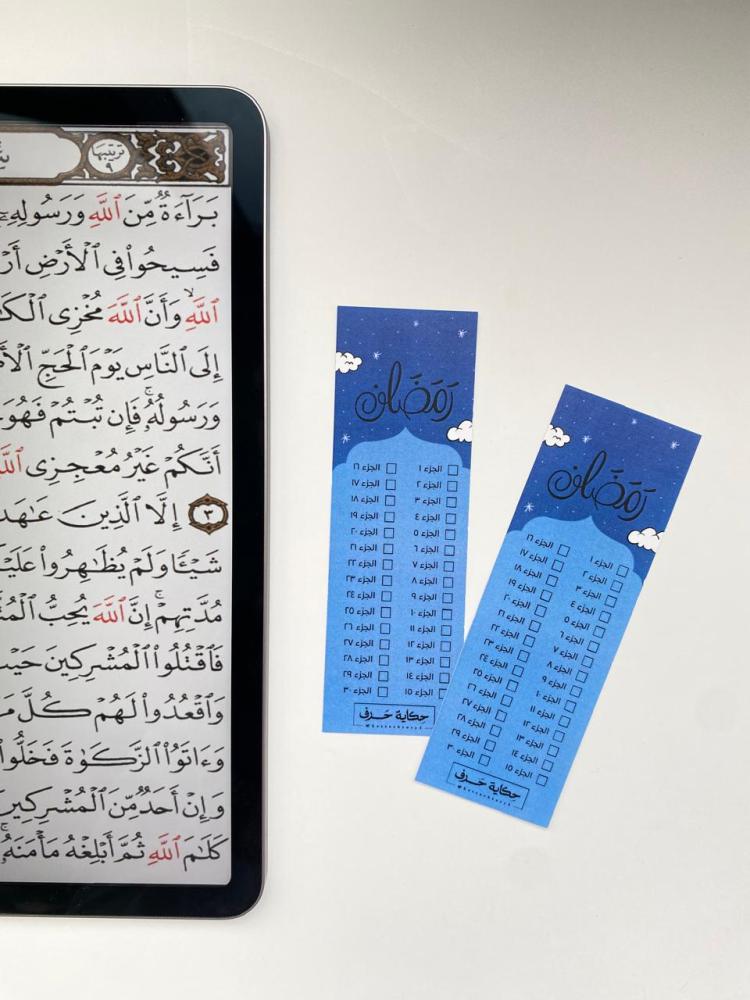 ترتيبها
٩
بَرَآءَةٌ مِّنَ ٱللَّهِ وَرَسُولِهِۦٓ
فَسِيحُوا۟ فِى ٱلْأَرْضِ أَرْ
ٱللَّهِ ۙ وَأَنَّ ٱللَّهَ مُخْزِى ٱلْكَ
إِلَى ٱلنَّاسِ يَوْمَ ٱلْحَجِّ ٱلْأَ
وَرَسُولُهُۥ ۚ فَإِن تُبْتُمْ فَهُوَ
أَنَّكُمْ غَيْرُ مُعْجِزِى ٱللَّ
٣ إِلَّا ٱلَّذِينَ عَٰهَد
شَيْـًٔا وَلَمْ يُظَٰهِرُوا۟ عَلَيْ
مُدَّتِهِمْ ۚ إِنَّ ٱللَّهَ يُحِبُّ ٱلْمُتَّ
فَٱقْتُلُوا۟ ٱلْمُشْرِكِينَ حَيْثُ
وَٱقْعُدُوا۟ لَهُمْ كُلَّ مَ
وَءَاتَوُا۟ ٱلزَّكَوٰةَ فَخَلُّوا۟
وَإِنْ أَحَدٌ مِّنَ ٱلْمُشْرِكِينَ
كَلَٰمَ ٱللَّهِ ثُمَّ أَبْلِغْهُ مَأْمَنَهُۥ ۚ
رَمَضَان
الجزء ١ الجزء ١٦
الجزء ٢ الجزء ١٧
الجزء ٣ الجزء ١٨
الجزء ٤ الجزء ١٩
الجزء ٥ الجزء ٢٠
الجزء ٦ الجزء ٢١
الجزء ٧ الجزء ٢٢
الجزء ٨ الجزء ٢٣
الجزء ٩ الجزء ٢٤
الجزء ١٠ الجزء ٢٥
الجزء ١١ الجزء ٢٦
الجزء ١٢ الجزء ٢٧
الجزء ١٣ الجزء ٢٨
الجزء ١٤ الجزء ٢٩
الجزء ١٥ الجزء ٣٠
حكاية حَرفي
رَمَضَان
الجزء ١ الجزء ١٦
الجزء ٢ الجزء ١٧
الجزء ٣ الجزء ١٨
الجزء ٤ الجزء ١٩
الجزء ٥ الجزء ٢٠
الجزء ٦ الجزء ٢١
الجزء ٧ الجزء ٢٢
الجزء ٨ الجزء ٢٣
الجزء ٩ الجزء ٢٤
الجزء ١٠ الجزء ٢٥
الجزء ١١ الجزء ٢٦
الجزء ١٢ الجزء ٢٧
الجزء ١٣ الجزء ٢٨
الجزء ١٤ الجزء ٢٩
الجزء ١٥ الجزء ٣٠
حكاية حَرفي